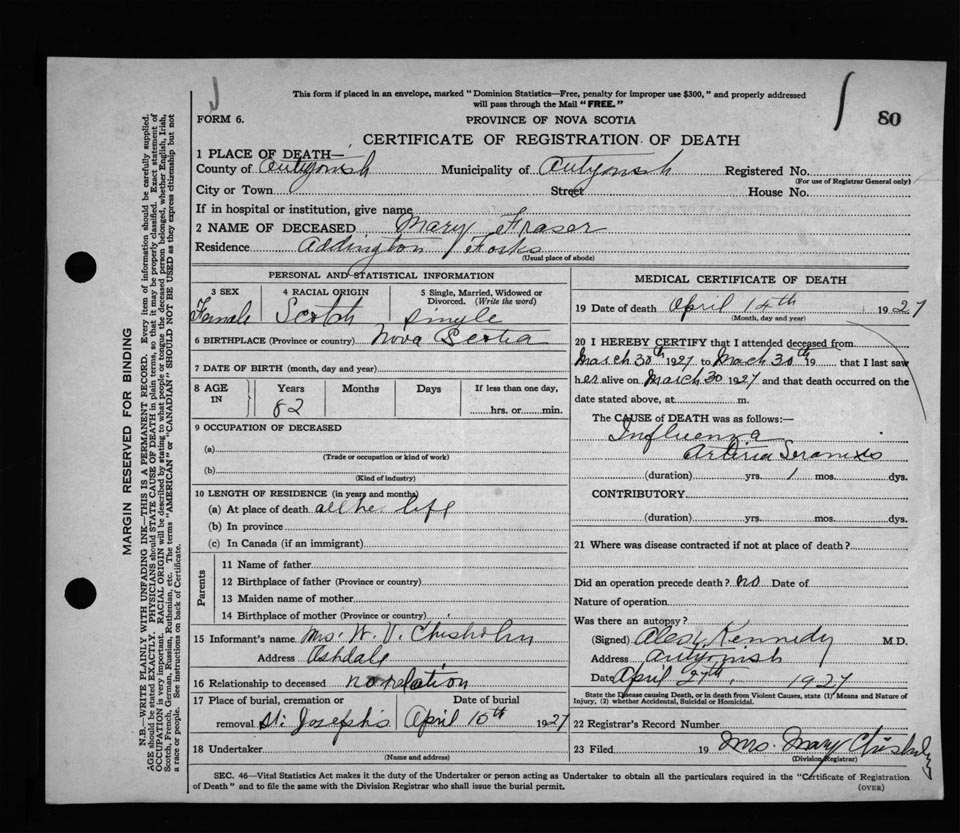 This form if placed in an envelope, marked "Dominion Statistics—Free, penalty for improper use $300," and properly addressed
will pass through the Mail "FREE."
80
FORM 6.
PROVINCE OF NOVA SCOTIA
CERTIFICATE OF REGISTRATION OF DEATH
1 PLACE OF DEATH—
County of Antigonish Municipality of Antigonish Registered No.
(For use of Registrar General only)
City or Town Street House No.
If in hospital or institution, give name
2 NAME OF DECEASED Mary Fraser
Residence Addington Forks
(Usual place of abode)
PERSONAL AND STATISTICAL INFORMATION
3 SEX 4 RACIAL ORIGIN 5 Single, Married, Widowed or
Divorced. (Write the word)
Female Scotch Single
6 BIRTHPLACE (Province or country) Nova Scotia
7 DATE OF BIRTH (month, day and year)
8 AGE IN Years Months Days If less than one day,
82 hrs. or min.
9 OCCUPATION OF DECEASED
(a)
(Trade or occupation or kind of work)
(b)
(Kind of industry)
10 LENGTH OF RESIDENCE (in years and months)
(a) At place of death all her life
(b) In province
(c) In Canada (if an immigrant)
Parents
11 Name of father
12 Birthplace of father (Province or country)
13 Maiden name of mother
14 Birthplace of mother (Province or country)
15 Informant's name Mrs. W. V. Chisholm
Address Ashdale
16 Relationship to deceased no relation
17 Place of burial, cremation or Date of burial
removal St. Joseph's April 16th 1927
18 Undertaker
(Name and address)
MEDICAL CERTIFICATE OF DEATH
19 Date of death April 14th 1927
(Month, day and year)
20 I HEREBY CERTIFY that I attended deceased from
March 30th 1927 to March 30th 19 that I last saw
her alive on March 30 1927 and that death occurred on the
date stated above, at m.
The CAUSE of DEATH was as follows:—
Influenza
(duration) yrs. 1 mos. dys.
CONTRIBUTORY
(duration) yrs. mos. dys.
21 Where was disease contracted if not at place of death?
Did an operation precede death? no Date of
Nature of operation
Was there an autopsy?
(Signed) Alex Kennedy M.D.
Address Antigonish
Date April 27th, 1927
State the Disease causing Death, or in death from Violent Causes, state (1) Means and Nature of
Injury, (2) whether Accidental, Suicidal or Homicidal.
22 Registrar's Record Number
23 Filed 19 Mrs. Mary Chisholm
(Division Registrar)
SEC. 46—Vital Statistics Act makes it the duty of the Undertaker or person acting as Undertaker to obtain all the particulars required in the "Certificate of Registration
of Death" and to file the same with the Division Registrar who shall issue the burial permit.
(OVER)
MARGIN RESERVED FOR BINDING
N.B.—WRITE PLAINLY WITH UNFADING INK—THIS IS A PERMANENT RECORD. Every item of information should be carefully supplied.
AGE should be stated EXACTLY. PHYSICIANS should STATE CAUSE OF DEATH in plain terms, so that it may be properly classified. Exact statement of
OCCUPATION is very important. RACIAL ORIGIN will be described by stating to what people or tongue the deceased person belonged, whether English, Irish,
Scotch, French, German, Russian, Ruthenian, etc. The terms "AMERICAN" or "CANADIAN" SHOULD NOT BE USED as they express citizenship but not
a race or people. See instructions on back of Certificate.